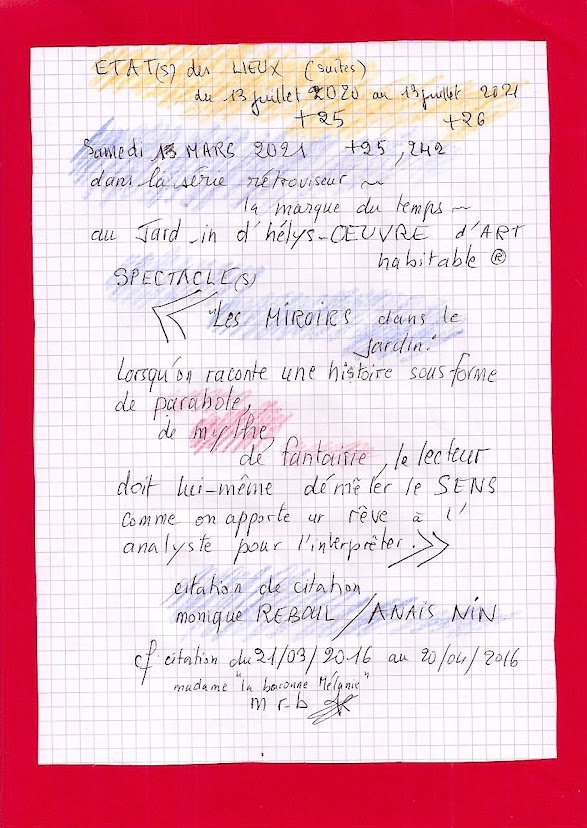 ETAT(S) des LIEUX (suites)
du 13 juillet 2020 au 13 juillet 2021
+25 +26
Samedi 13 MARS 2021 +25,242
dans la série rétroviseur ~
la marque du temps ~
au Jard-in d'hélys-ŒUVRE d'ART
habitable ®
SPECTACLE(S)
« Les MIROIRS dans le
jardin.
Lorsqu'on raconte une histoire sous forme
de parabole,
de mythe,
de fantaisie, le lecteur
doit lui-même démêler le SENS
comme on apporte un rêve à l'
analyste pour l'interpréter. »
citation de citation
monique REBOUL / ANAIS NIN
cf citation du 21/03/2016 au 20/04/2016
madame "la baronne Mélanie"
m r-b